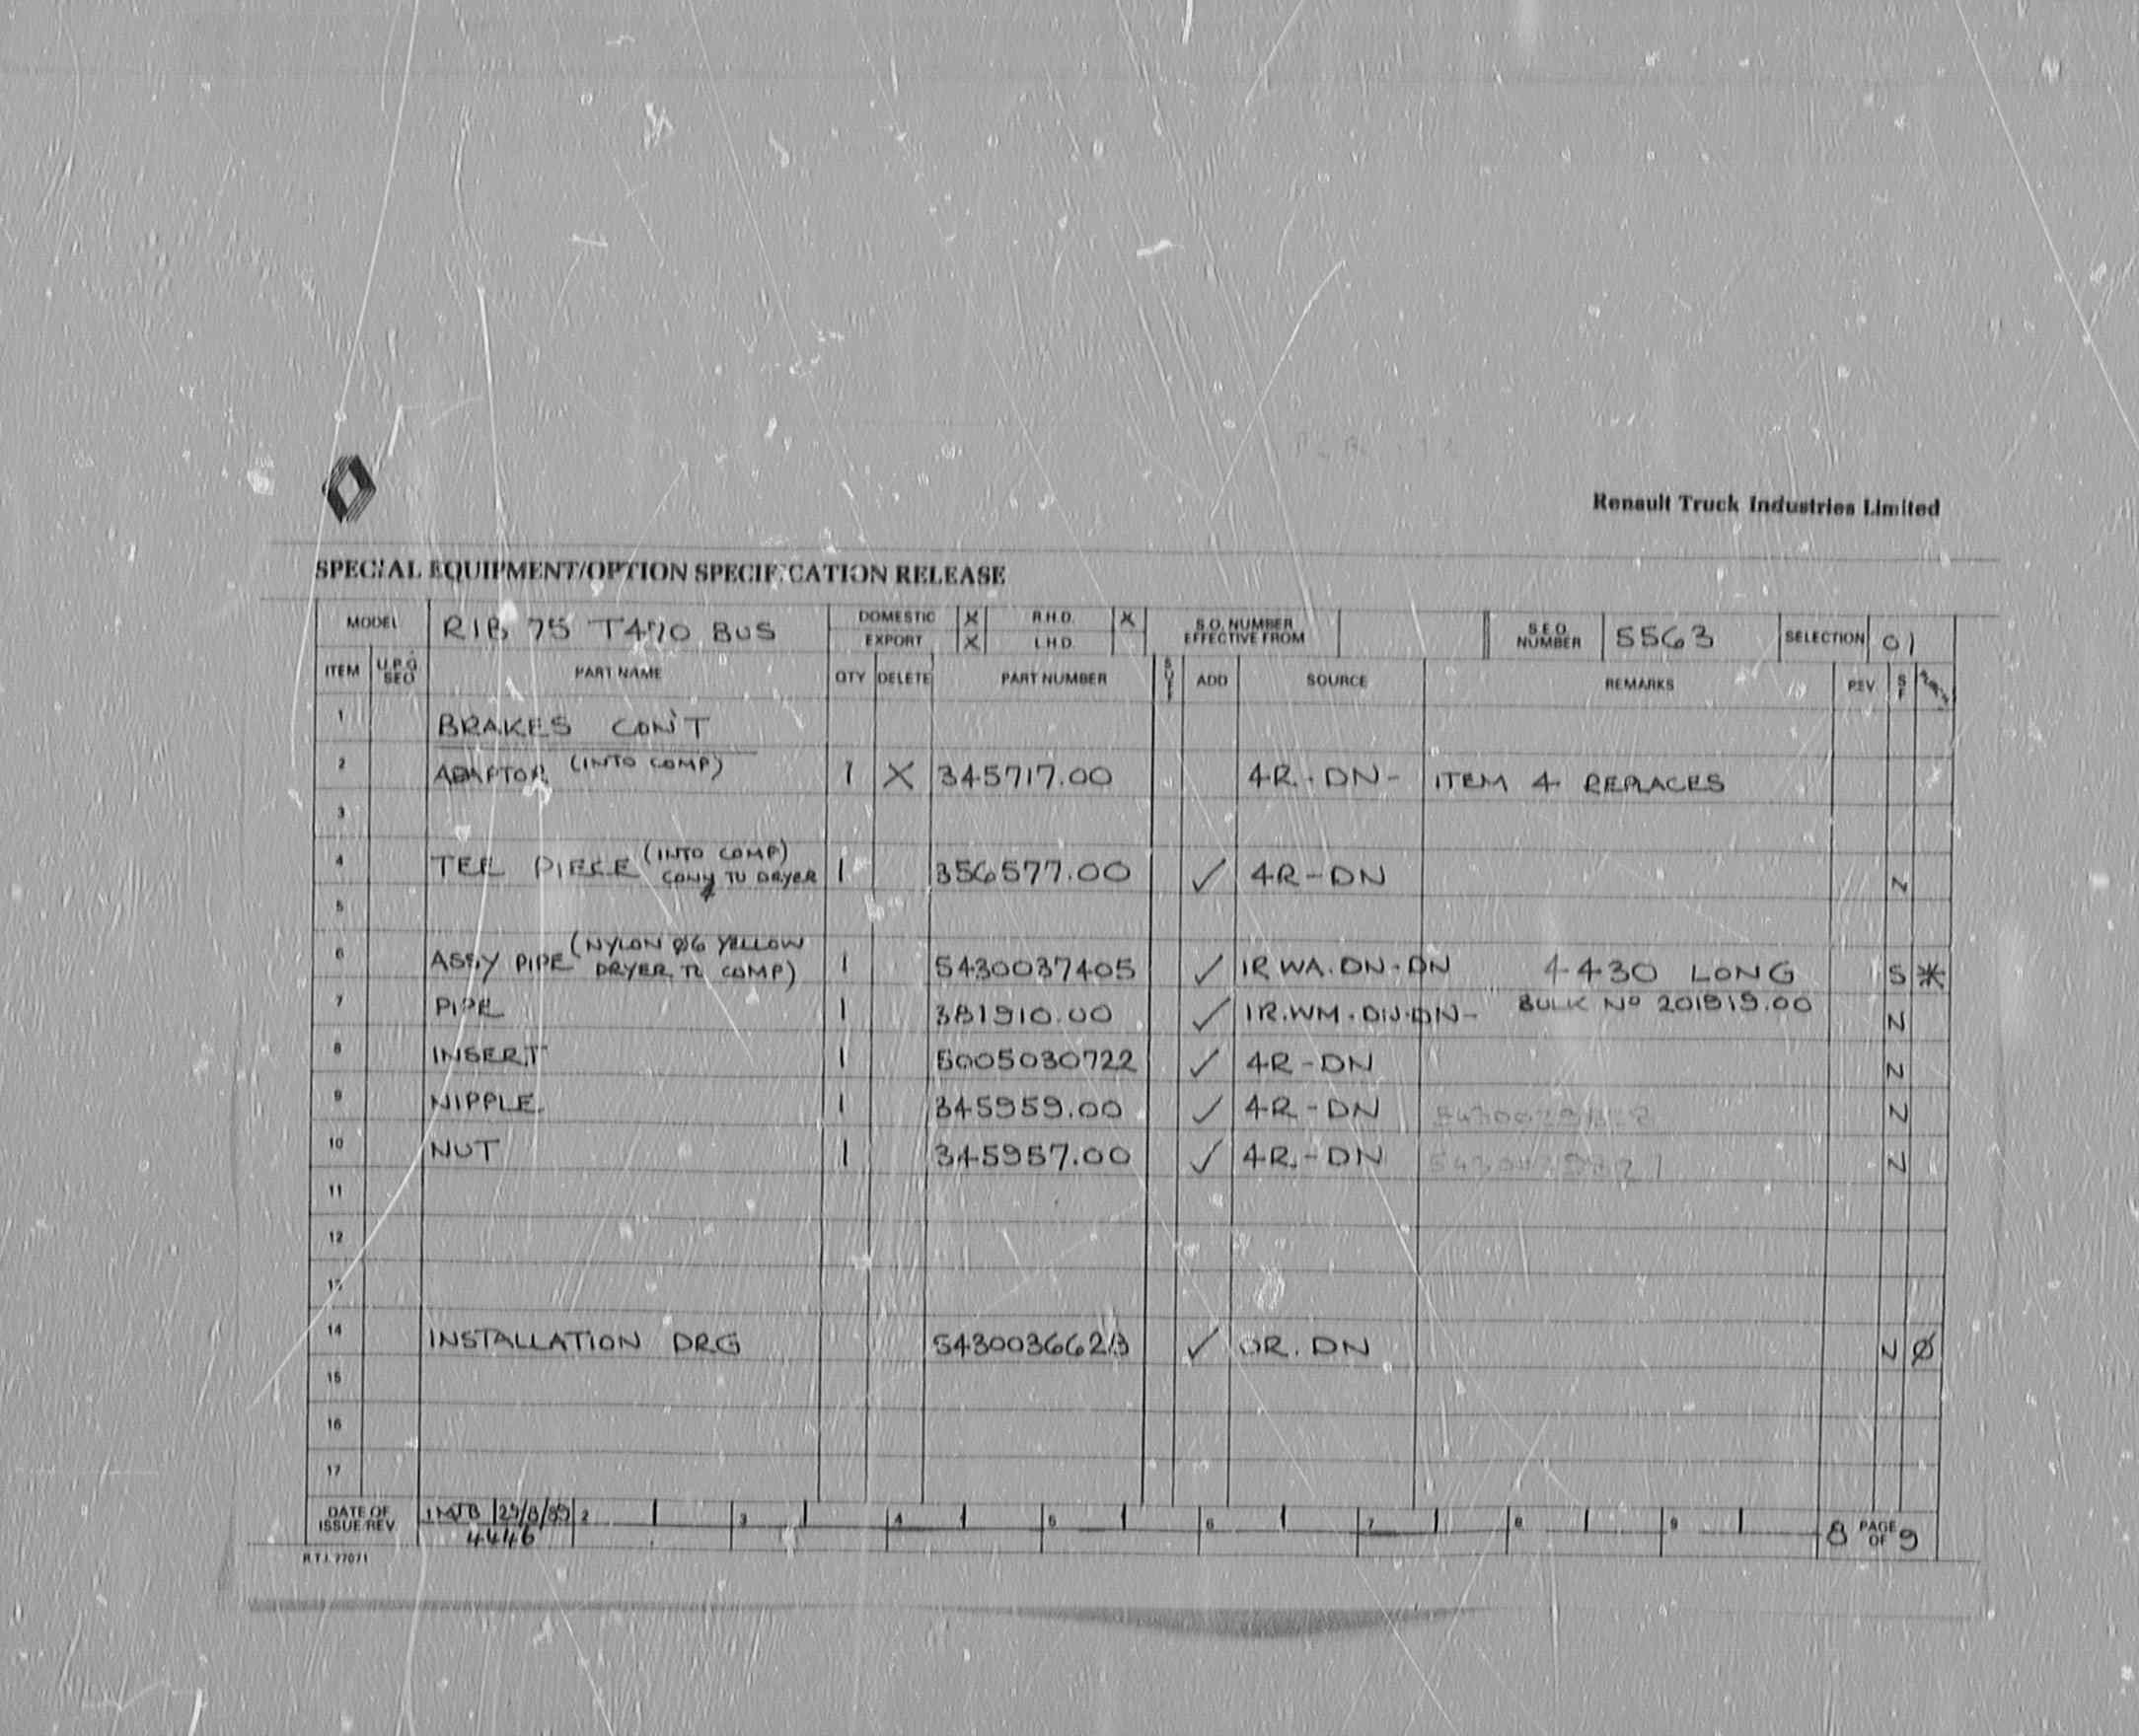 Renault Truck Industries Limited
SPECIAL EQUIPMENT/OPTION SPECIFICATION RELEASE
MODEL RIB 75 T470 BUS DOMESTIC X R.H.D. X S.O. NUMBER EFFECTIVE FROM S.E.O. NUMBER 5563 SELECTION 01
EXPORT X L.H.D.
ITEM U.P.G SEO PART NAME QTY DELETE PART NUMBER ADD SOURCE REMARKS REV
1 BRAKES CON'T
2 ADAPTOR (INTO COMP) 1 X 345717.00 4R.DN- ITEM 4 REPLACES
3
4 TEE PIECE (INTO COMP) TO DRYER 1 356577.00 ✓ 4R-DN N
5
6 ASSY PIPE (NYLON Ø6 YELLOW DRYER TO COMP) 1 5430037405 ✓ 1R WA.DN.DN 4430 LONG S *
7 PIPE 1 381910.00 ✓ 1R.WM.DN.DN- BULK No 201919.00 N
8 INSERT 1 5005030722 ✓ 4R-DN N
9 NIPPLE 1 345959.00 ✓ 4R-DN N
10 NUT 1 345957.00 ✓ 4R.-DN N
11
12
13
14 INSTALLATION DRG 5430036623 ✓ OR.DN N Ø
15
16
17
DATE OF ISSUE/REV 1 MJB 29/8/89 2 3 4 5 6 7 8 9 8 PAGE OF 9
4446
R.T.I. 77071